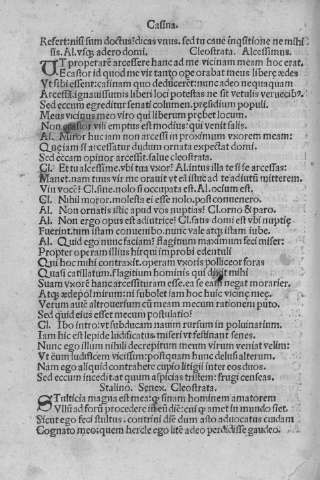 Casina.
Refert: nisi sum doctus? dicas vnus. sed tu caue inq̃sitione ne mihi
sis. Al. vsq̃ adero domi. Cleostrata. Alcesimus.
UT properarẽ arcessere hanc ad me vicinam meam hoc erat,
Ecastor id quod me vir tanto opere orabat meus liberę ędes
Vt sibi essent: casinam quo deducerẽt: nunc adeo nequaquam
Arcessã. ignauissimis liberi loci potestas ne sit vetulis
Sed eccum egreditur senati columen. pręsidium populi.
Meus vicinus meo viro qui liberum pręhet locum.
Non vili emptus est modius: qui venit salis.
Al. Miror huc iam non arcessi in proximum vxorem meam:
Que iam si arcessatur dudum ornata expectat domi.
Sed eccam opinor arcessit. salue cleostrata.
Cl. Et tu alcesime. vbi tua vxor? Al. intus illa te si se arcessas:
Manet. nam tuus vir me orauit vt eã istuc ad te adiutũ mitterem.
Vin vocẽ? Cl. sine. nolo si occupata est. Al. ocium est.
Cl. Nihil moror. molesta ei esse nolo. post conuenero.
Al. Non ornatis istic apud vos nuptias? Cl. orno & paro.
Al. Non ergo opus est adiutrice? Cl. satis domi est vbi nuptię
Fuerint. tum istam conuenibo. nunc vale atq̃ istam iube.
Al. Quid ego nunc faciam? flagitium maximum feci miser:
Propter operam illius hirqui improbi edentuli
Qui hoc mihi contraxit. operam vxoris polliceor foras
Quasi catillatum. flagitium hominis qui dixit mihi
Suam vxorẽ hanc arcessituram esse. ea se eam negat morarier.
Atq̃ ædepol mirum: ni subolet iam hoc huic vicinę męę.
Verum autẽ altrouersum cũ meam mecum rationem puto.
Sed quid eius esset mecum postulatio?
Cl. Ibo intro: vt subducam nauim rursum in puluinarium.
Iam hic est lepide ludificatus. miseri vt festinant senes.
Nunc ego illum nihili decrepitum meum virum veniat velim:
Vt eum ludificem vicissim: postquam hunc delusi alterum.
Nam ego aliquid contrahere cupio litigii inter eos duos.
Sed eccum incedit. at quum aspicias tristem: frugi censeas.
Stalino. Senex. Cleostrata.
STulticia magna est mea: q̃ sinam hominem amatorem
Vllũ ad forũ procedere in eũ diẽ: cui q̃ amet in mundo siet.
Sicut ego feci stultus. contriui diẽ dum asto aduocatus cuidam
Cognato meo: quem hercle ego litẽ adeo perdidisse gaudeo.